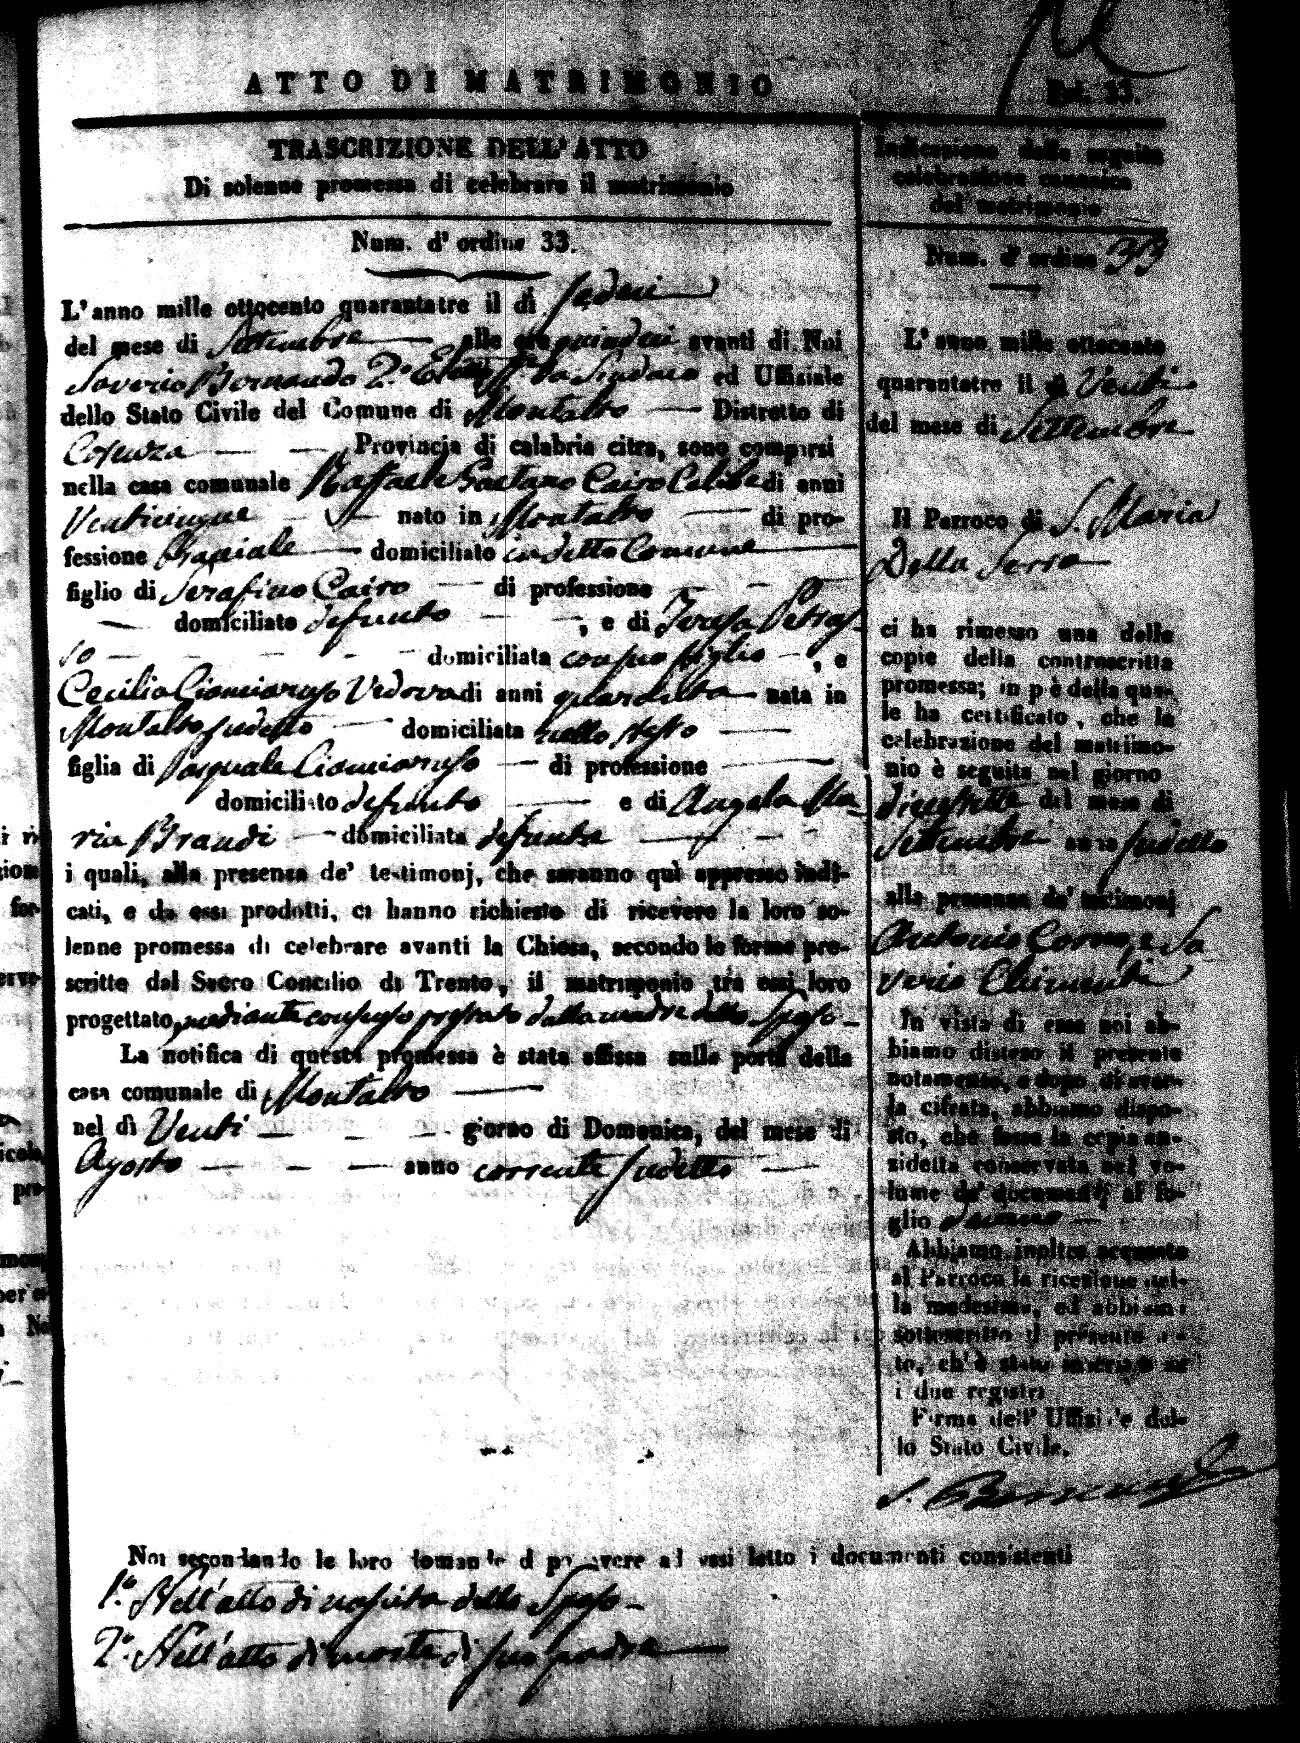 ATTO DI MATRIMONIO
Fol. 33.
TRASCRIZIONE DELL'ATTO
Di solenne promessa di celebrare il matrimonio
Num. d' ordine 33.
L'anno mille ottocento quarantatre il dì sedeci
del mese di Settembre alle ore quindeci avanti di Noi
Saverio Bernaudo 2.° Eletto ff. da Sindaco ed Uffiziale
dello Stato Civile del Comune di Montalto Distretto di
Cosenza Provincia di calabria citra, sono comparsi
nella casa comunale Raffaele Gaetano Cairo Celibe di anni
Venticinque nato in Montalto di pro-
fessione Braciale domiciliato in detto Comune
figlio di Serafino Cairo di professione
domiciliato defunto , e di Teresa Petras-
so domiciliata con suo figlio , e
Cecilia Cianciaruso Vedova di anni quarantta nata in
Montalto sudetto domiciliata nello stesso
figlia di Pasquale Cianciaruso di professione
domiciliato defunto e di Angela Ma-
ria Brandi domiciliata defunta
i quali, alla presenza de' testimonj, che saranno quì appresso indi-
cati, e da essi prodotti, ci hanno richiesto di ricevere la loro so-
lenne promessa di celebrare avanti la Chiesa, secondo le forme pre-
scritte dal Sacro Concilio di Trento, il matrimonio tra essi loro
progettato, mediante consenso prestato dalla madre dello Sposo
La notifica di questa promessa è stata affissa sulla porta della
casa comunale di Montalto
nel dì Venti giorno di Domenica, del mese di
Agosto anno corrente sudetto
Indicazione della seguita
celebrazione canonica
del matrimonio
Num. d' ordine 33
L' anno mille ottocento
quarantatre il dì Venti
del mese di Settembre
Il Parroco di S. Maria
Della Serra
ci ha rimesso una delle
copie della controscritta
promessa; in piè della qua-
le ha certificato, che la
celebrazione del matrimo-
nio è seguita nel giorno
diecisette del mese di
Settembre anno sudetto
alla presenza de' testimonj
Antonio e Sa
verio Chimenti
In vista di essa noi ab-
biamo disteso il presente
notamento, e dopo di aver-
la cifrata, abbiamo dispo-
sto, che fosse la copia an-
zidetta conservata nel vo-
lume de' documenti al fo-
glio
Abbiamo inoltre accusato
al Parroco la ricezione del-
la medesima, ed abbiamo
sottoscritto il presente at-
to, ch' è stato inscritto su'
i due registri
Firma dell' Uffiziale del-
lo Stato Civile.
S. Bernaudo
Noi secondando le loro domande di passi letto i documenti consistenti
1.° Nell'atto di nascita dello Sposo
2.° Nell'atto di morte di suo padre